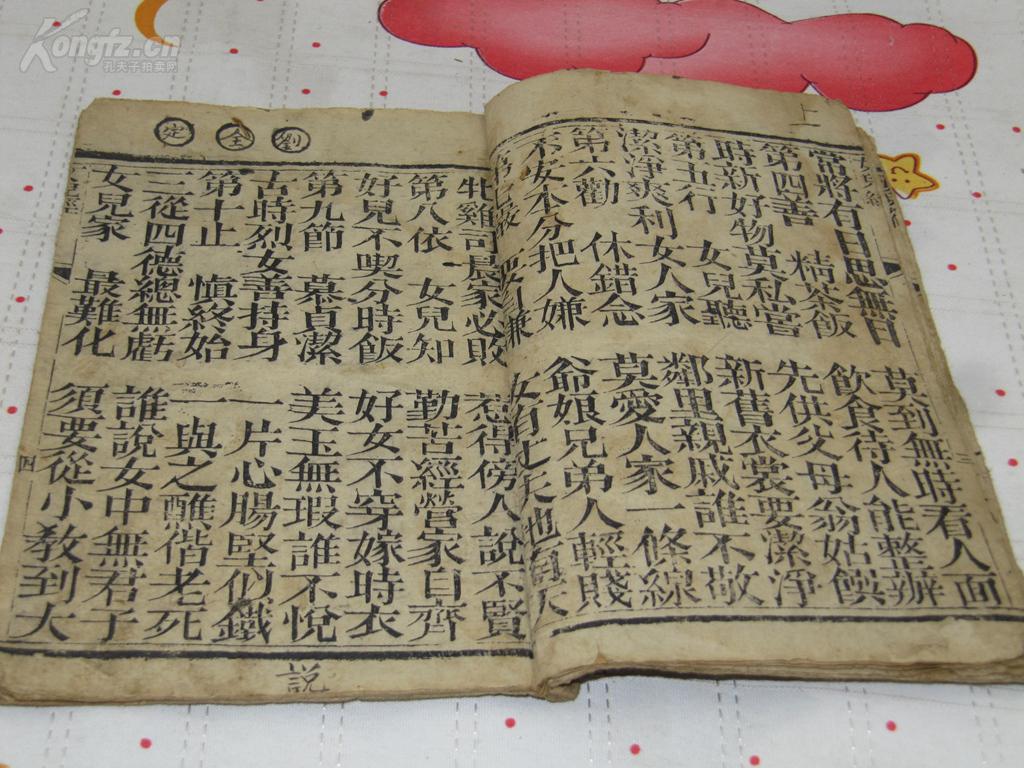 Kongfz.cn
孔夫子拍卖网
上
常將有日思無日 莫到無時看人面
第四善 精茶飯 飲食待人能整辦
時新好物莫私嘗 先供父母翁姑饌
第五行 女兒聽 新舊衣裳要潔淨
潔淨爽利女人家 鄰里親戚誰不敬
第六勸 休錯念 莫愛人家一條線
不安本分把人嫌 爺娘兄弟人輕賤
女有
牝雞司晨家必敗 惹得傍人說不賢
第八依 女兒知 勤苦經營家自齊
好兒不喫分時飯 好女不穿嫁時衣
第九節 慕貞潔 美玉無瑕誰不悅
古時烈女善持身 一片心腸堅似鐵
第十止 慎終始 一與之醮偕老死
三從四德總無虧 誰說女中無君子
女兒家 最難化 須要從小教到大
劉全定
四
説